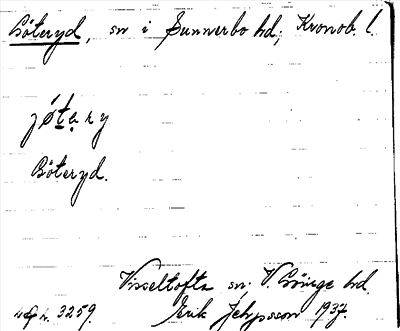 Göteryd, sn i Sunnerbo hd; Kronob. l.
jøtary
Göteryd.
Visseltofta sn; V. Göinge hd.
3259. Erik Jeppsson 1937.